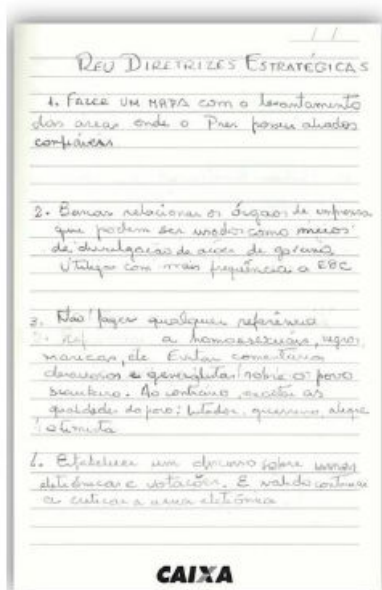 REU DIRETRIZES ESTRATÉGICAS
1. FAZER UM MAPA com o levantamento
das areas onde o Pres possui aliados
confiáveis
2. Buscar relacionar os órgãos de imprensa
que podem ser usados como meios
de divulgação de ações de governo
Utilizar com mais frequência a EBC
3. Não fazer qualquer referência
a homosexuais, negros
maricas, etc Evitar comentários
e generalistas sobre o povo
brasileiro. Ao contrário, exaltar as
qualidades do povo; lutador, guerreiro, alegre
otimista
Estabelecer um discurso sobre urnas
eletrônicas e votações. É válido continuar
a criticar a urna eletrônica
CAIXA